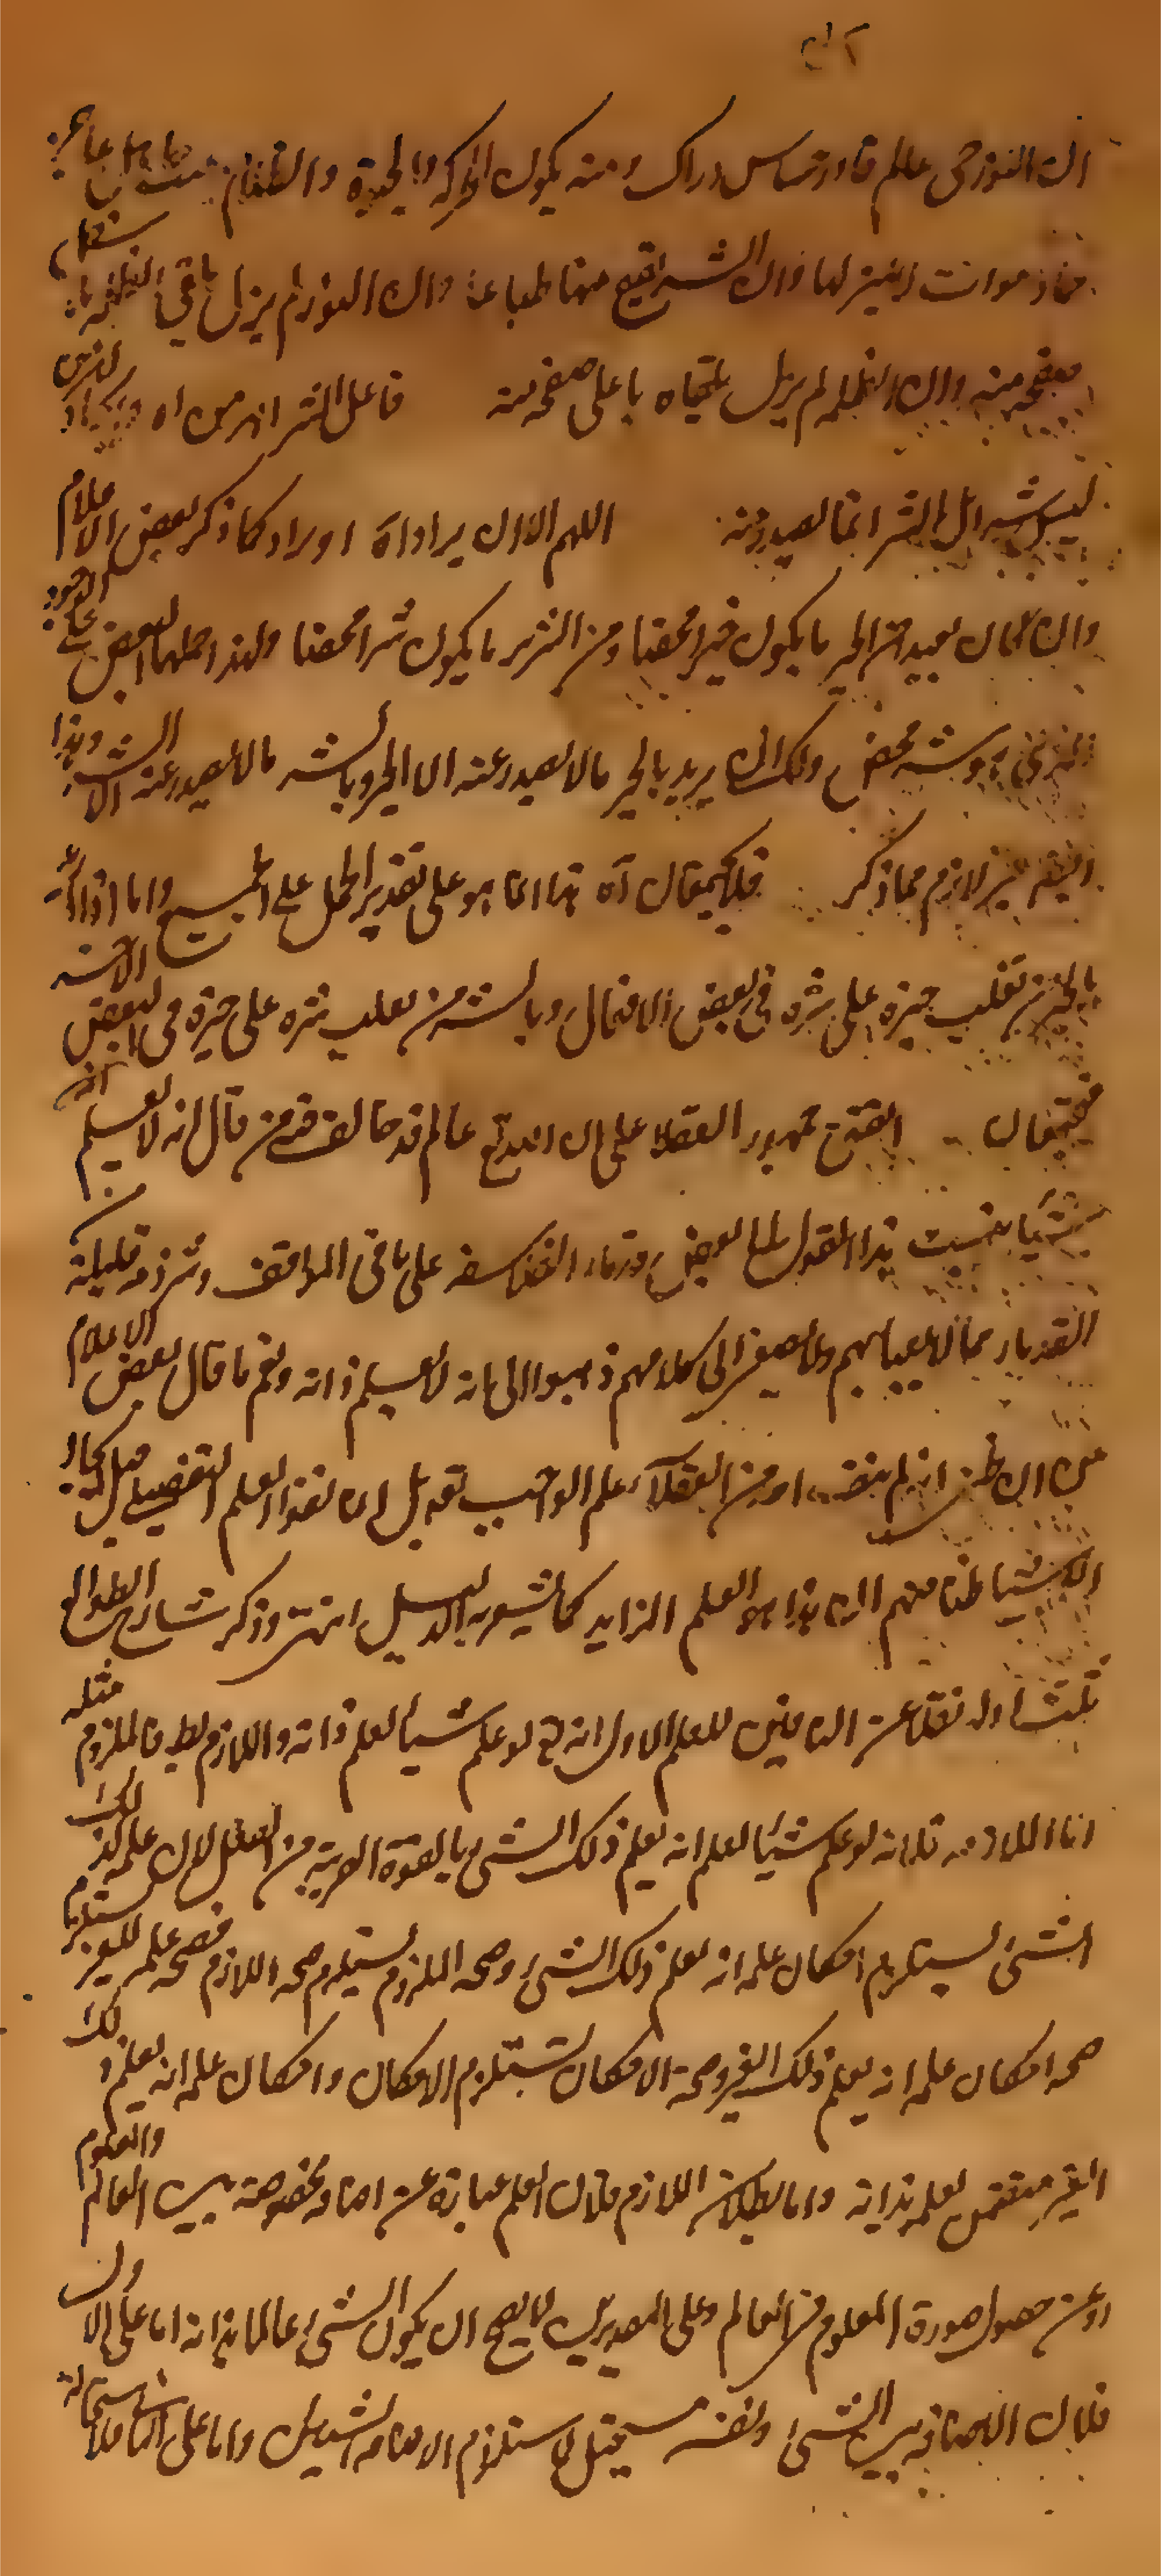 ان النور حي عالم قادر حساس دراك ومنه يكون الحركة والحيوة والظلام ميت جاهل عاجز
جماد موات لا تميز لها وان الشر يقع منها طباعا وان النور لم يزل يلقي الظلمة باسفل
صفحة منه وان الظلمة لم يزل يلقاه باعلى صفحة منه فاعل الشر اهرمن اه
ليس شر بل الشر انما يصدر منه اللهم الا ان يراد اه او يراد كما ذكر بعض الاعلام
وان كان يعبد من الخير ما يكون خيرا محضا ومن الشرير ما يكون شرا محضا ولهذا حملها بعض على الوجود
وشر محض ولك ان يريد بالخير ما لا يصدر عنه الا الخير وبالشر ما لا يصدر عنه الا الشر وهذا
غير لازم مما ذكر فلا يجتمعان اه هذا انما هو على تقدير الحمل على الجميع واما اذا اريد
بالخير من تغلب خيره على شره في بعض الافعال وبالشر من يغلب شره على خيره في البعض الاخر
فيجتمعان اتفق جمهور العقلاء على ان الله تع عالم قد خالف فيه من قال انه لا يعلم
شيئا نسبت هذا القول لبعض قدماء الفلاسفة على ما في المواقف وشرذمة قليلة من
القدماء مما لا يعبأ بهم ولا يصغى الى كلامهم ذهبوا الى انه لا يعلم ذاته ونعم ما قال بعض الاعلام
من ان ظني انه لم ينف احد من العقلاء علم الواجب تع بل ان نفوا العلم التفصيلي قبل ايجاد
الاشياء ظنا منهم ان هذا هو العلم الزايد كما يشعر به الدليل انتهى وذكر شارح الطوالع
ثلث ادلة نقلا عن النافين للعلم الاول انه تع لو علم شيئا لعلم ذاته واللازم بط فالملزوم مثله
اما الملازمة فلانه لو علم شيئا لعلم انه يعلم ذلك الشئ بالقوة القريبة من الفعل لان علمه لذلك
الشئ يستلزم امكان علمه انه يعلم ذلك الشئ وصحة الملزوم يستلزم صحة اللازم فصحة علمه للغير يستلزم
صحة امكان علمه انه يعلم ذلك الغير وصحة الامكان تستلزم الامكان وامكان علمه انه يعلم ذلك
الغير متضمن لعلمه بذاته واما بطلان اللازم فلان العلم عبارة عن اضافة مخصوصة بين العالم والمعلوم
او عن حصول صورة المعلوم في العالم وعلى التقديرين لا يصح ان يكون الشئ عالما بذاته اما على الاول
فلان الاضافة بين الشئ ونفسه مستحيل لاستلزام الاضافة الشيئين واما على الثاني فلاستحالة